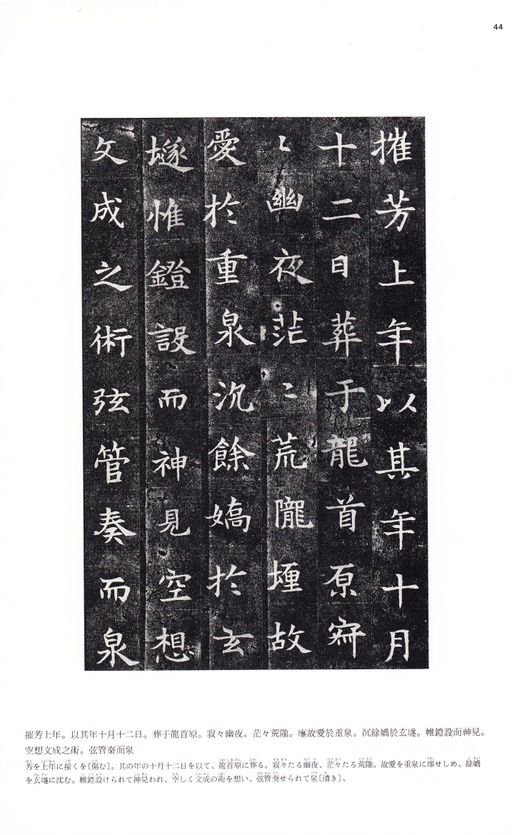 44
摧芳上年以其年十月
十二日葬于龍首原寂
々幽夜茫々荒隴堙故
愛於重泉沉餘嬌於玄
墜惟鐙設而神見空想
文成之術弦管奏而泉
摧芳上年。以其年十月十二日。葬于龍首原。寂々幽夜。茫々荒隴。堙故愛於重泉。沉餘嬌於玄墜。帷鐙設而神見。
空想文成之術。弦管奏而泉
芳を上年に摧くを〔傷む〕。其の年の十月十二日を以て、龍首原に葬る。寂々たる幽夜、茫々たる荒隴。故愛を重泉に堙せしめ、餘嬌
を玄墜に沈む。帷鐙設けられて神見われ、空しく文成の術を想い、弦管奏せられて泉〔濆き〕、